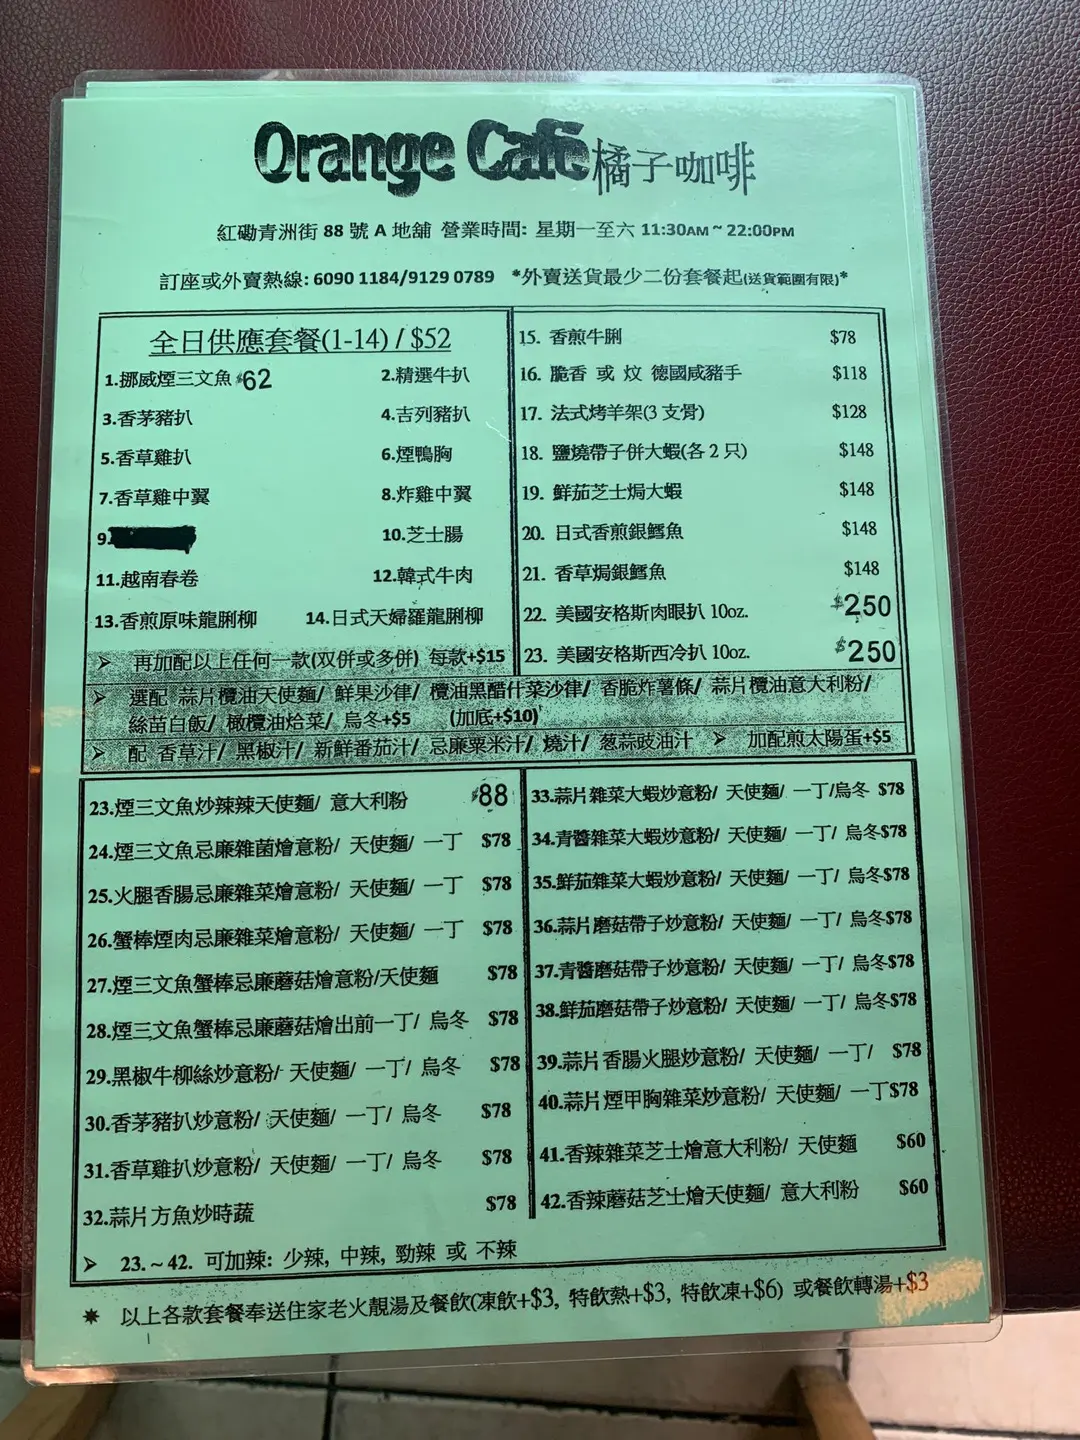 Orange Café 橘子咖啡
紅磡青洲街 88 號 A 地舖 營業時間: 星期一至六 11:30AM ~ 22:00PM
訂座或外賣熱線: 6090 1184/9129 0789 *外賣送貨最少二份套餐起(送貨範圍有限)*
全日供應套餐(1-14) / $52
1.挪威煙三文魚 $62
2.精選牛扒
3.香茅豬扒
4.吉列豬扒
5.香草雞扒
6.煙鴨胸
7.香草雞中翼
8.炸雞中翼
9.
10.芝士腸
11.越南春卷
12.韓式牛肉
13.香煎原味龍脷柳
14.日式天婦羅龍脷柳
➢ 再加配以上任何一款(双併或多併) 每款+$15
15. 香煎牛脷 $78
16. 脆香 或 炆 德國咸豬手 $118
17. 法式烤羊架(3 支骨) $128
18. 鹽燒帶子併大蝦(各 2 只) $148
19. 鮮茄芝士焗大蝦 $148
20. 日式香煎銀鱈魚 $148
21. 香草焗銀鱈魚 $148
22. 美國安格斯肉眼扒 10oz. $250
23. 美國安格斯西冷扒 10oz. $250
➢ 選配 蒜片欖油天使麵/ 鮮果沙律/ 欖油黑醋什菜沙律/ 香脆炸薯條/ 蒜片欖油意大利粉/
絲苗白飯/ 橄欖油烚菜/ 烏冬+$5 (加底+$10)
➢ 配 香草汁/ 黑椒汁/ 新鮮番茄汁/ 忌廉粟米汁/ 燒汁/ 葱蒜豉油汁 ➢ 加配煎太陽蛋+$5
23.煙三文魚炒辣辣天使麵/ 意大利粉 $88
24.煙三文魚忌廉雜菌燴意粉/ 天使麵/ 一丁 $78
25.火腿香腸忌廉雜菜燴意粉/ 天使麵/ 一丁 $78
26.蟹棒煙肉忌廉雜菜燴意粉/ 天使麵/ 一丁 $78
27.煙三文魚蟹棒忌廉蘑菇燴意粉/天使麵 $78
28.煙三文魚蟹棒忌廉蘑菇燴出前一丁/ 烏冬 $78
29.黑椒牛柳絲炒意粉/ 天使麵/ 一丁/ 烏冬 $78
30.香茅豬扒炒意粉/ 天使麵/ 一丁/ 烏冬 $78
31.香草雞扒炒意粉/ 天使麵/ 一丁/ 烏冬 $78
32.蒜片方魚炒時蔬 $78
33.蒜片雜菜大蝦炒意粉/ 天使麵/ 一丁/烏冬 $78
34.青醬雜菜大蝦炒意粉/ 天使麵/ 一丁/ 烏冬$78
35.鮮茄雜菜大蝦炒意粉/ 天使麵/ 一丁/ 烏冬$78
36.蒜片磨菇帶子炒意粉/ 天使麵/ 一丁/ 烏冬$78
37.青醬磨菇帶子炒意粉/ 天使麵/ 一丁/ 烏冬$78
38.鮮茄磨菇帶子炒意粉/ 天使麵/ 一丁/ 烏冬$78
39.蒜片香腸火腿炒意粉/ 天使麵/ 一丁/ $78
40.蒜片煙甲胸雜菜炒意粉/ 天使麵/ 一丁$78
41.香辣雜菜芝士燴意大利粉/ 天使麵 $60
42.香辣蘑菇芝士燴天使麵/ 意大利粉 $60
➢ 23. ~ 42. 可加辣: 少辣, 中辣, 勁辣 或 不辣
✷ 以上各款套餐奉送住家老火靚湯及餐飲(凍飲+$3, 特飲熱+$3, 特飲凍+$6) 或餐飲轉湯+$3